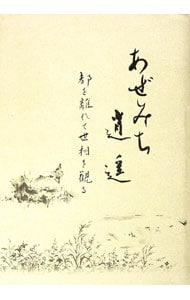 あぜみち
逍遥
都を離れて世相を観る